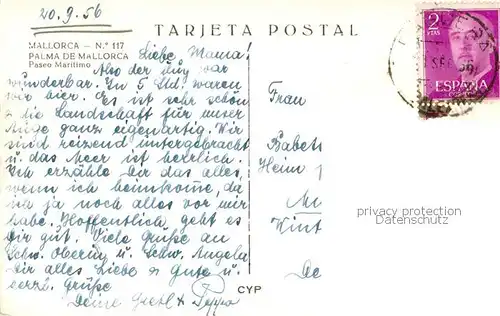 20.9.56
TARJETA POSTAL
MALLORCA – N.° 117
PALMA DE MALLORCA
Paseo Marítimo
Liebe Mama!
Also der Flug war
wunderbar. In 5 Std. waren
wir hier. Es ist sehr schön
u. die Landschaft für unser
Auge ganz eigenartig. Wir
sind reizend untergebracht
u. das Meer ist herrlich.
Ich erzähle Dir das alles,
wenn ich heimkomme, da
ich ja noch alles vor mir
habe. Hoffentlich geht es
Dir gut. Viele Grüße an
Schw. Oberin u. Schw. Angela
Dir alles Liebe u. Gute u.
herzl. Grüße
Deine Gretl + Peppo
CYP
Frau
Babet
Heim
Wint
2
PTAS
ESPAÑA
CORREOS
privacy protection
Datenschutz